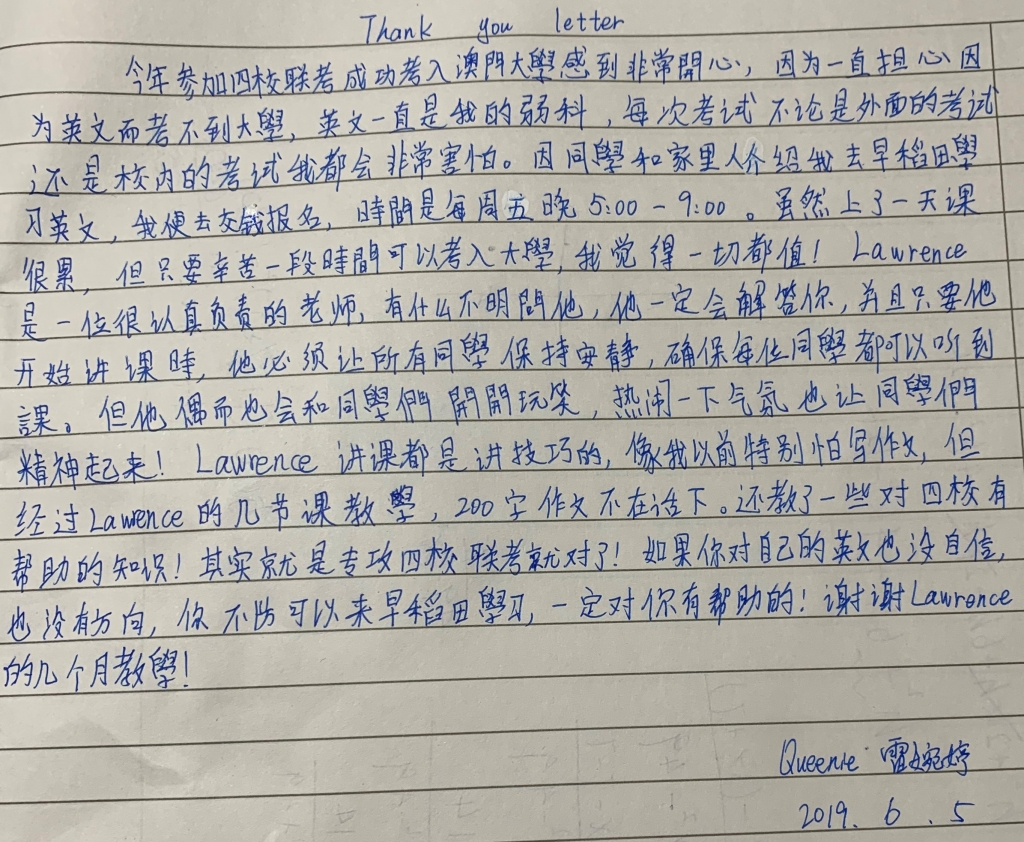 Thank you letter
今年参加四校联考成功考入澳門大學感到非常開心，因为一直担心因
为英文而考不到大學，英文一直是我的弱科，每次考试不论是外面的考试
还是校内的考试我都会非常害怕。因同學和家里人介绍我去早稻田學
习英文，我便去交钱报名，時間是每周五晚5:00-9:00。虽然上了一天课
很累，但只要辛苦一段時間可以考入大學，我觉得一切都值！Lawrence
是一位很认真负责的老师，有什么不明問他，他一定会解答你，并且只要他
开始讲课時，他必须让所有同學保持安静，确保每位同學都可以听到
課。但他偶而也会和同學們開開玩笑，热闹一下气氛也让同學們
精神起来！Lawrence讲课都是讲技巧的，像我以前特别怕写作文，但
经过Lawrence的几节课教學，200字作文不在话下。还教了一些对四校有
帮助的知识！其实就是专攻四校联考就对了！如果你对自己的英文也没自信，
也没有方向，你不防可以来早稻田學习，一定对你有帮助的！谢谢Lawrence
的几个月教學！
Queenie 雷婉婷
2019. 6 . 5